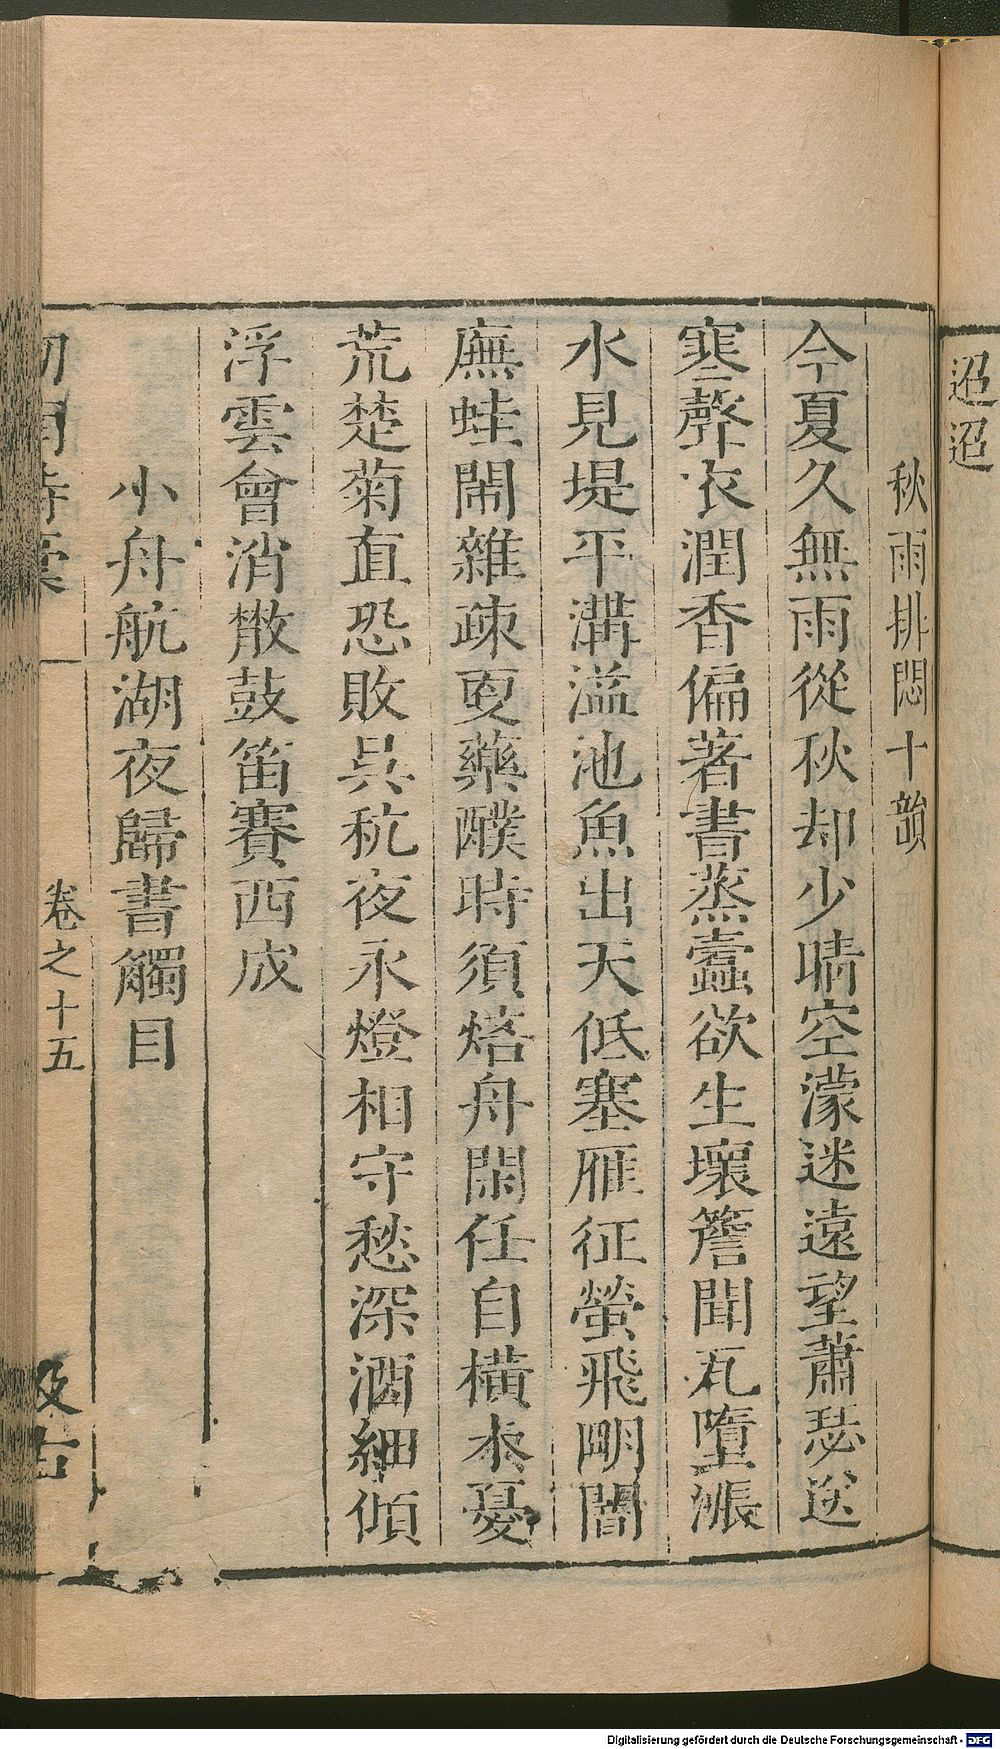 迢迢
秋雨排悶十韻
今夏久無雨從秋却少晴空濛迷遠望蕭瑟送
寒聲衣潤香偏著書蒸蠹欲生壞簷聞瓦墮漲
水見堤平溝溢池魚出天低塞雁征螢飛明闇
廡蛙鬧雜疎更藥醭時須焙舟閑任自橫未憂
荒楚菊直恐敗吳秔夜永燈相守愁深酒細傾
浮雲會消散鼓笛賽西成
小舟航湖夜歸書觸目
卷之十五
汲古
Digitalisierung gefördert durch die Deutsche Forschungsgemeinschaft - DFG